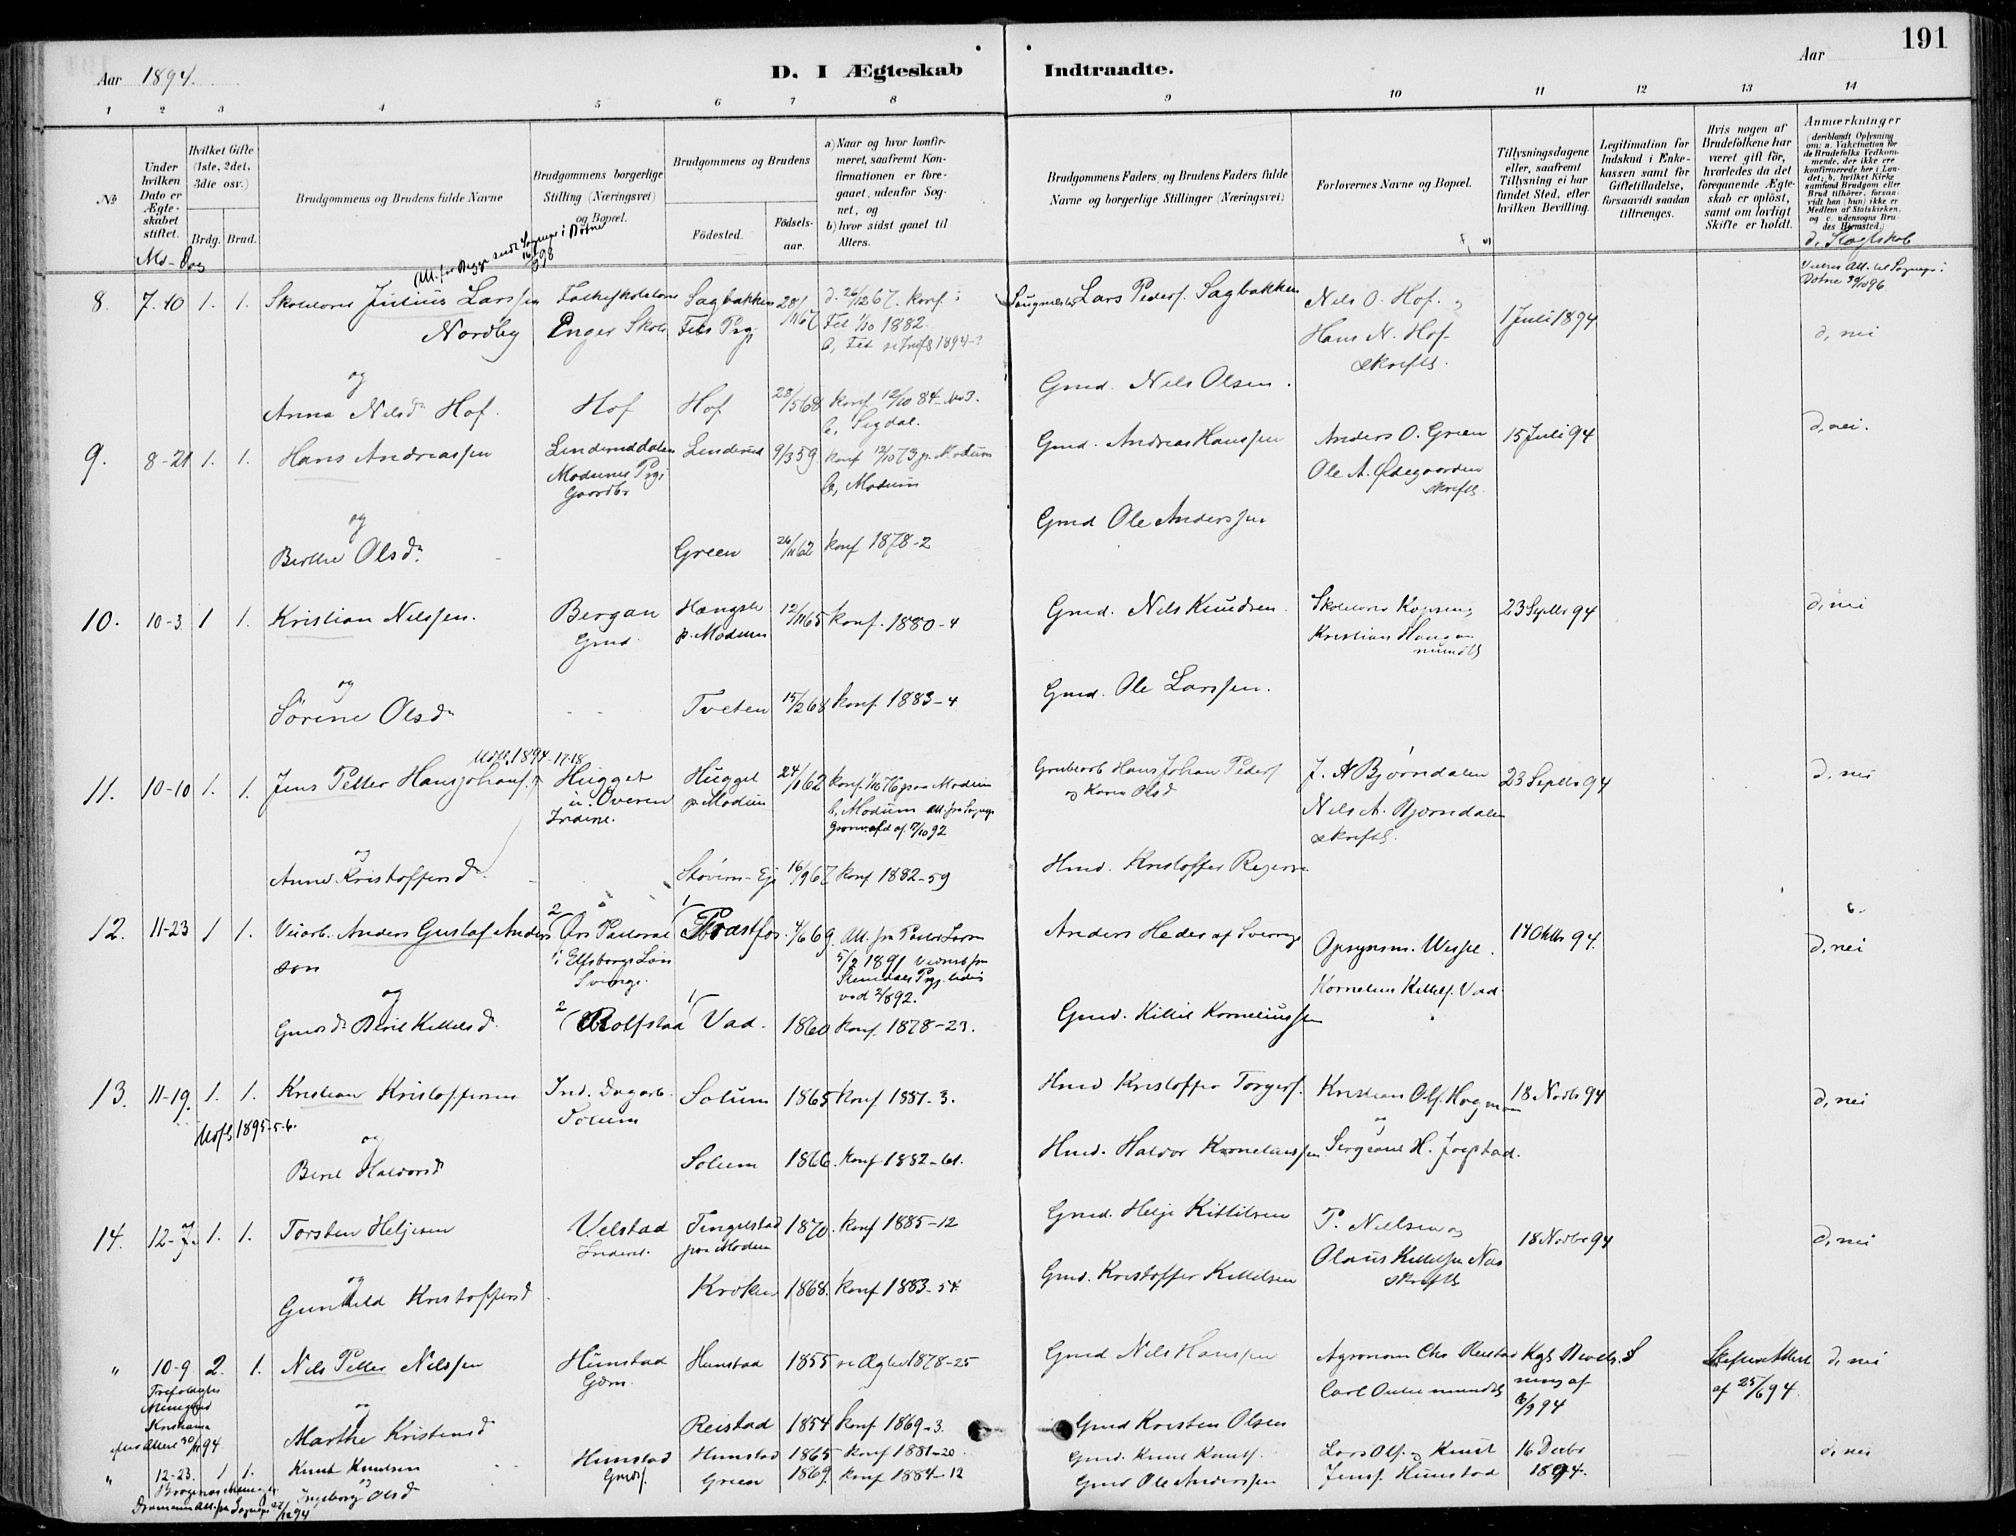 191
Aar 1894.
D. I Ægteskab Indtraadte.
Aar
1 2 3 4 5 6 7 8 9 10 11 12 13 14
№
Under hvilken Dato er Ægteskabet stiftet.
Hvilket Gifte (1ste, 2det, 3die osv.)
Brdg. Brud.
Brudgommens og Brudens fulde Navne
Brudgommens borgerlige Stilling (Næringsvei) og Bopæl.
Brudgommens og Brudens
Fødested.
Fødselsaar.
a) Naar og hvor konfirmeret, saafremt Konfirmationen er foregaaet udenfor Sognet, og
b) hvor sidst gaaet til Alters.
Brudgommens Faders, og Brudens Faders fulde Navne og borgerlige Stillinger (Næringsvei)
Forlovernes Navne og Bopæl.
Tillysningsdagene eller, saafremt Tillysning ei har fundet Sted, efter hvilken Bevilling.
Legitimation for Indskud i Enkekassen samt for Giftetilladelse, forsaavidt saadan tiltrænges.
Hvis nogen af Brudefolkene har været gift før, hvorledes da det foregaaende Ægteskab er opløst, samt om lovligt Skifte er holdt.
Anmærkninger (deriblandt Oplysning om: a. Vakcination for de Brudefolks Vedkommende, der ikke ere konfirmerede her i Landet; b. hvilket Kirkesamfund Brudgom eller Brud tilhører, forsaavidt han (hun) ikke er Medlem af Statskirken, og c. udensogns Brudes Hjemsted.)
d. Slægtskab
Md- Dag
8. 7-10 1. 1. Skolelærer Julius Larssen Nordby
Enger Skole
Sagbakken Fets Pgj
28/11 67
d. 26/12 67. konf. i Fet 1/10 1882.
Lars Peders. Sagbakken
Nils O. Hof.
Hans N. Hof
skriftl.
1 Juli 1894
d, nei
og
Anna Nilsdr Hof. Hof Hof 23/5 68 konf 12/10 84-No 3.
b, Sigdal.
Gmd. Nils Olsen.
9. 8-21 1. 1. Hans Andreassen
Linderuddalen Modums Pgj Gaardbr
Linderud 9/3 59 konf 12/10 73 p. Modum
b, Modum
Gmd. Andreas Hanssen
Anders O. Green
Ole A. Ødegaarden
skriftl.
15 Juli 94
d, nei.
og
Berthe Olsdr. Green 26/11 62 konf 1878-2
Gmd Ole Anderssen
10. 10-3 1 1. Kristian Nilssen. Bergan Gmd. Hængsle p. Modum 12/11 65 konf. 1880-4
Gmd. Nils Knudsen.
Kristian Haugan mundtl
23 Septbr 94
d, nei
og
Sørine Olsdr Tveten 15/2 68 konf. 1883-4
Gmd. Ole Larssen.
11. 10-10 1. 1. Jens Petter Hansjohans.
Udfl. 1894-17-18
Hugget u. Overen Inderst.
Hugget p. Modum 24/1 62 konf. 1/10 76 paa Modum
b, Modum
Grubearb Hans Johan Peders og Karen Olsd
J. A Bjørndalen
Nils A. Bjørndalen
skriftl.
23 Septbr 94
d, nei
og
Anne Kristoffersdr. Støvern-Eje 16/9 67 konf 1882-59
Hmd. Kristoffer
12. 11-23 1 1. Veiarb. Anders Gustaf Anderson
Örs Pastorat i Elfsborgs Län Sverige.
Prastfos. 4/6 69. Att. fra Pastor
5/2 1891
Anders Heder af Sverige
Opsynsm. Wessel.
Kornelius Kittils. Vad.
14 Oktbr 94.
d, nei
og
Gmdsdr Beret Kittelsdr. Rolfstad Vad. 1860 konf. 1878-23.
Gmd. Kittil Korneliussen
13. 11-19. 1. 1. Kristian Kristoffersen
Udfl. 1895-5-6.
Ind. Dagarb. Solum
Solum 1865 konf 1881-3.
Hmd Kristoffer Torgers.
Kristian Ols. Hagman
18 Novbr 94
d, nei
og
Beret Halvorsdr Solum 1866. konf 1882-61.
Hmd. Halvor Korneliussen
14. 12-7. 1. 1. Torsten Heljesen
Velstad Inderst.
Tingelstad paa Modum 1870. konf 1885-12
Gmd. Helje Kittilsen
P. Nielsen og
Olaus Kittelsen Næs
skriftl
18 Novbr 94
d, nei
og
Gunhild Kristoffersd Kroken 1868. konf 1883-54.
Gmd. Kristoffer Kittilsen
" 10-9 2. 1. Nils Petter Nilssen
Hunstad Gdm.
Hunstad 1855 se Ægtev 1878-25
Gmd Nils Hanssen
Agronom Chr Reistad
Kgl. Bevilling af 3/9 94
Skifteattest af 25/6 94.
d, nei
Trefoldigheds Menighed Kristiania
efter Attest 30/11 94
og
Marthe Kristensdr Reistad 1854 konf 1869-3.
Gmd Kristen Olsen
" 12-23. 1 1. Knut Knutsen
Hunstad
Hunstad 1865 konf 1881-20
Gmd. Knut Knuts.
Lars Ols. og Knut
Jens. Hunstad
16 Decbr 1894.
d, nei
Bragenæs Menighed
Drammen Att. fra Sognepr 27/12 94
og
Ingeborg Olsd Green 1869. konf 1884-12
Gmd Ole Anderssen